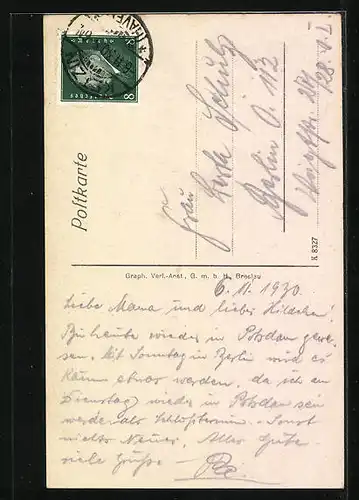 Postkarte
Frau
Berta Schulz
Berlin O. 112
K 8327
Graph. Verl.-Anst., G. m. b. H., Breslau
6.11.1930.
Liebe Mama und liebes Hildchen!
Bin heute wieder in Potsdam gewe-
sen. Mit Sonntag in Berlin wird es
kaum etwas werden, da ich am
Dienstag wieder in Potsdam sein
werde als Schlußtermin. Sonst
nichts Neues. Alles Gute
viele Grüße
8
8